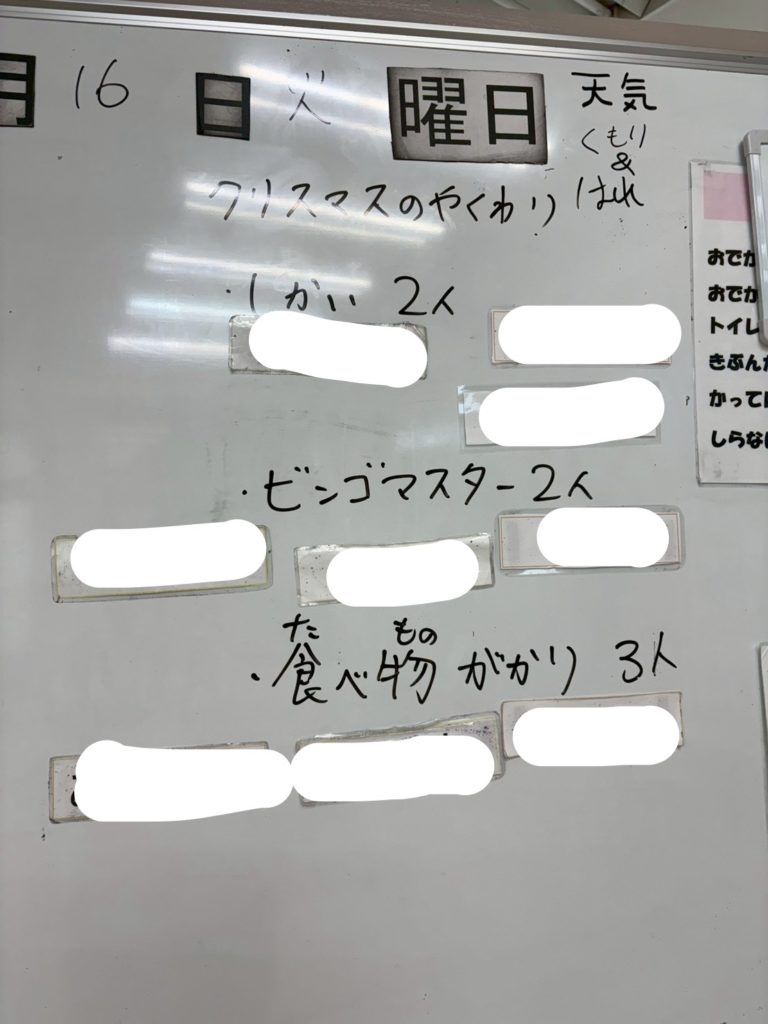 月 16 日 火 曜日 天気
くもり
&
はれ
クリスマスのやくわり
・しかい 2人
・ビンゴマスター 2人
た もの
・食べ物 がかり 3人
おでか
おでか
トイレ
きぶん
かって
しらな